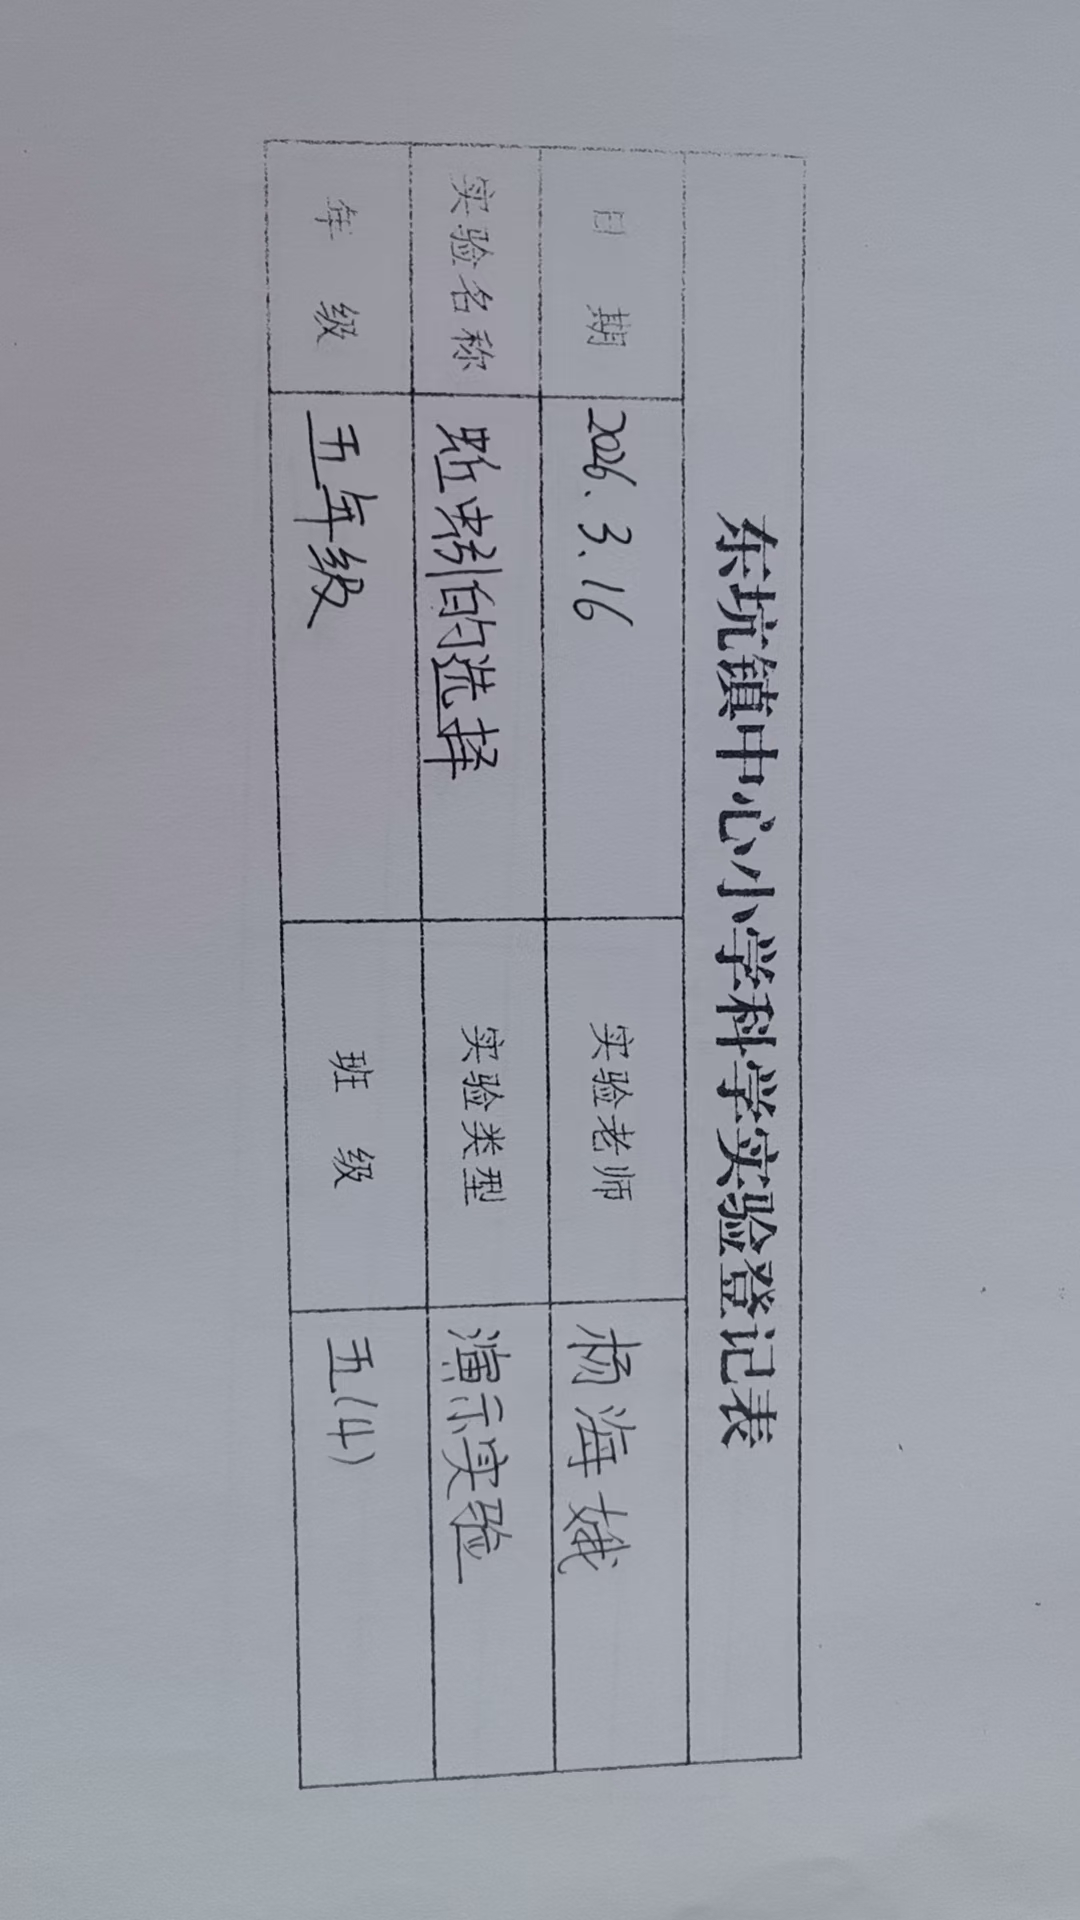 东坑镇中心小学科学实验登记表
日 期 2026.3.16 实验老师 杨海娥
实验名称 蚯蚓的选择 实验类型 演示实验
年 级 五年级 班 级 五(4)